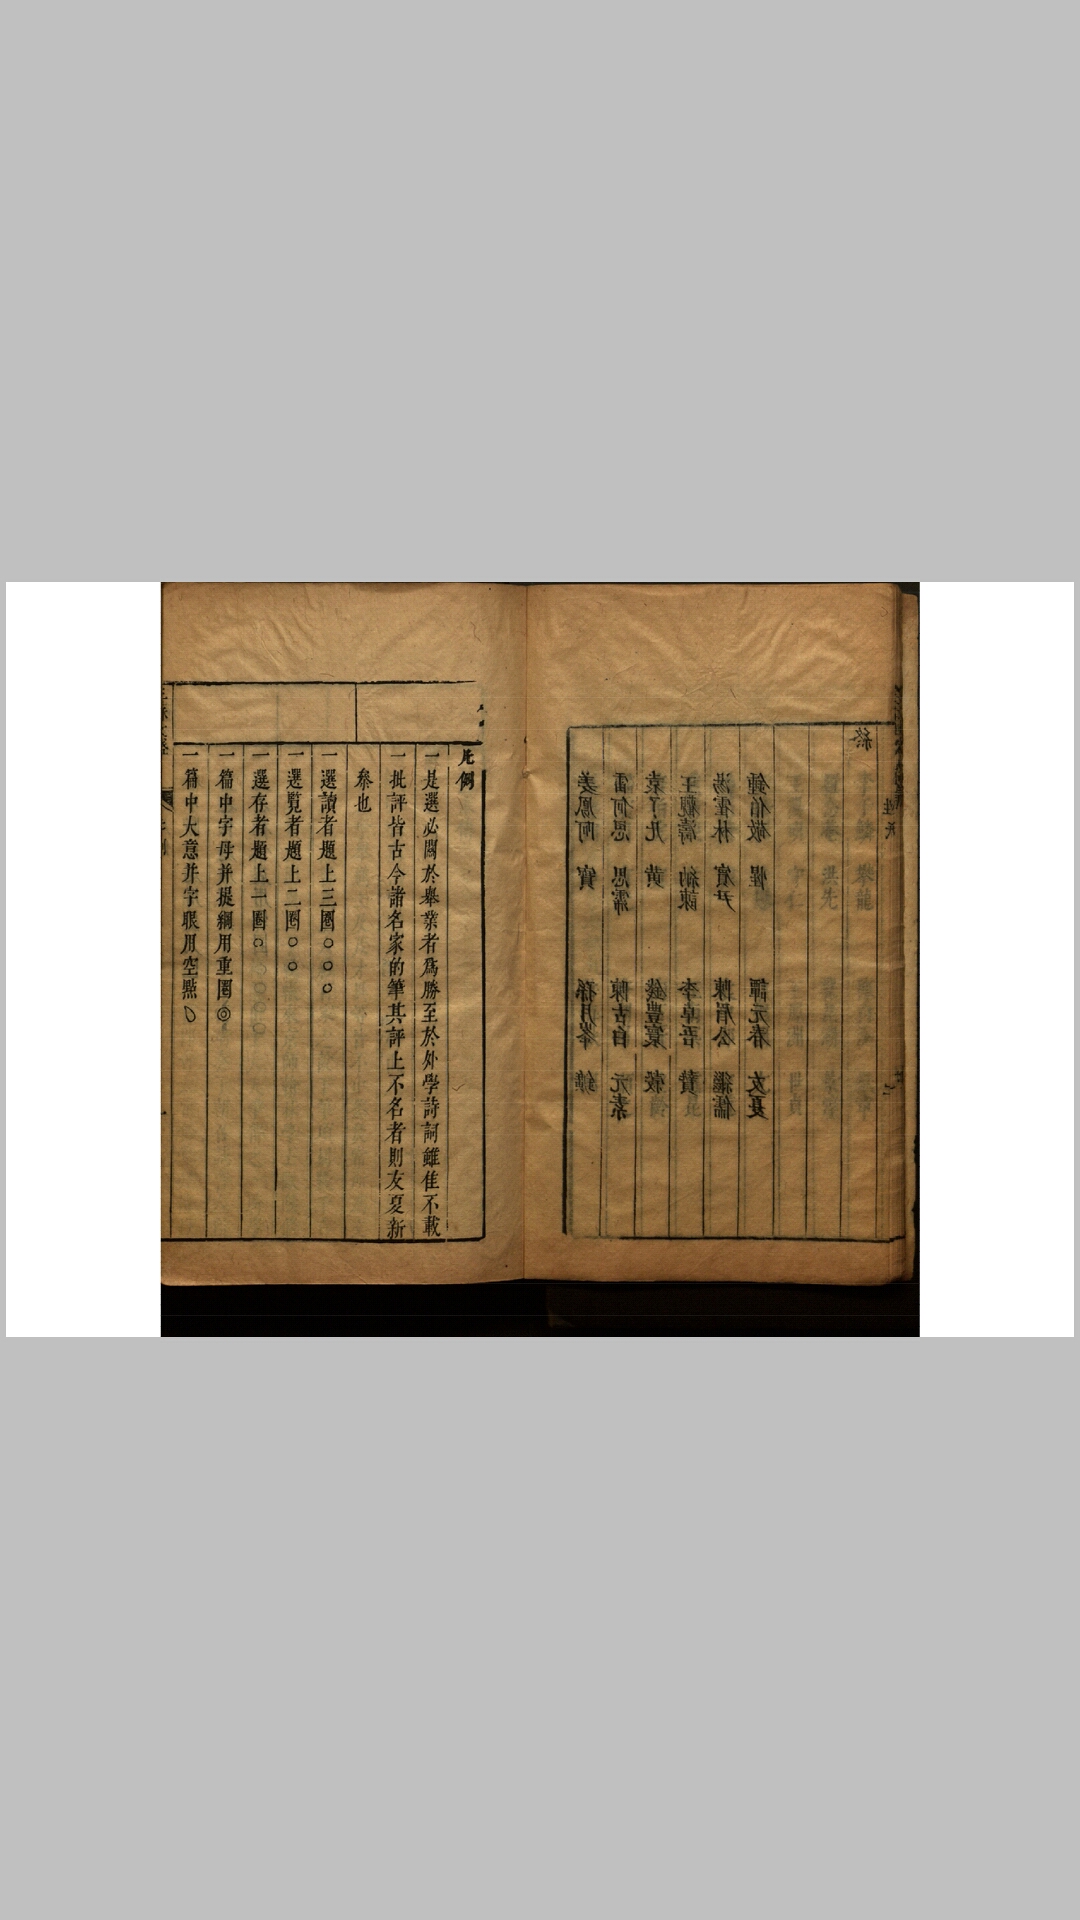 終
姓氏
鍾伯敬 惺 譚元春 友夏
湯霍林 賓尹 陳眉公 繼儒
王觀濤 納諫 李卓吾 贄
袁了凡 黃 錢豐寰
雷何思 思霈 陳古白 元素
姜鳳阿 寶 孫月峯 鑛
凡例
一是選必關於舉業者爲勝至於外學詩詞雖佳不載
一批評皆古今諸名家的筆其評上不名者則友夏新
叅也
一選讀者題上三圈○○○
一選覧者題上二圈○○
一選存者題上一圈○
一篇中字母并提綱用重圈◎
一篇中大意并字眼用空㸃